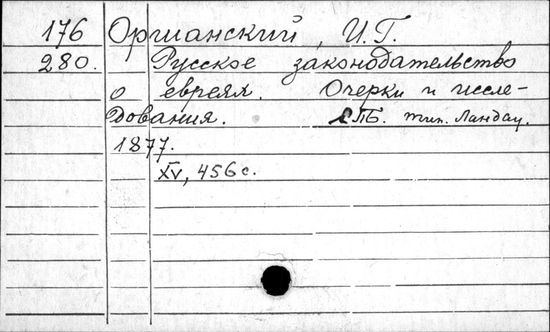 176 Оршанский, И. Г.
280. Русское законодательство
о евреях. Очерки и иссле-
дования. СПБ. тип. Ландау.
1877.
XV, 456 с.